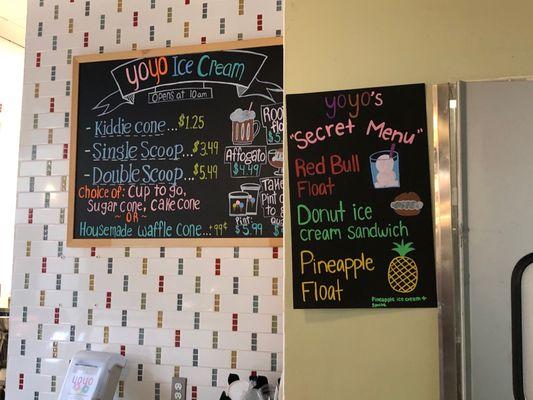 yoyo Ice Cream
opens at 10am
- Kiddie cone...$1.25
- Single Scoop...$3.49
- Double Scoop...$5.49
Choice of: Cup to go,
Sugar cone, cake cone
~ OR ~
Housemade Waffle Cone...99¢
Affogato
$4.49
Pint:
$5.99
yoyo's
"Secret Menu"
Red Bull
Float
Donut ice
cream sandwich
Pineapple
Float
Pineapple ice cream +
yoyo